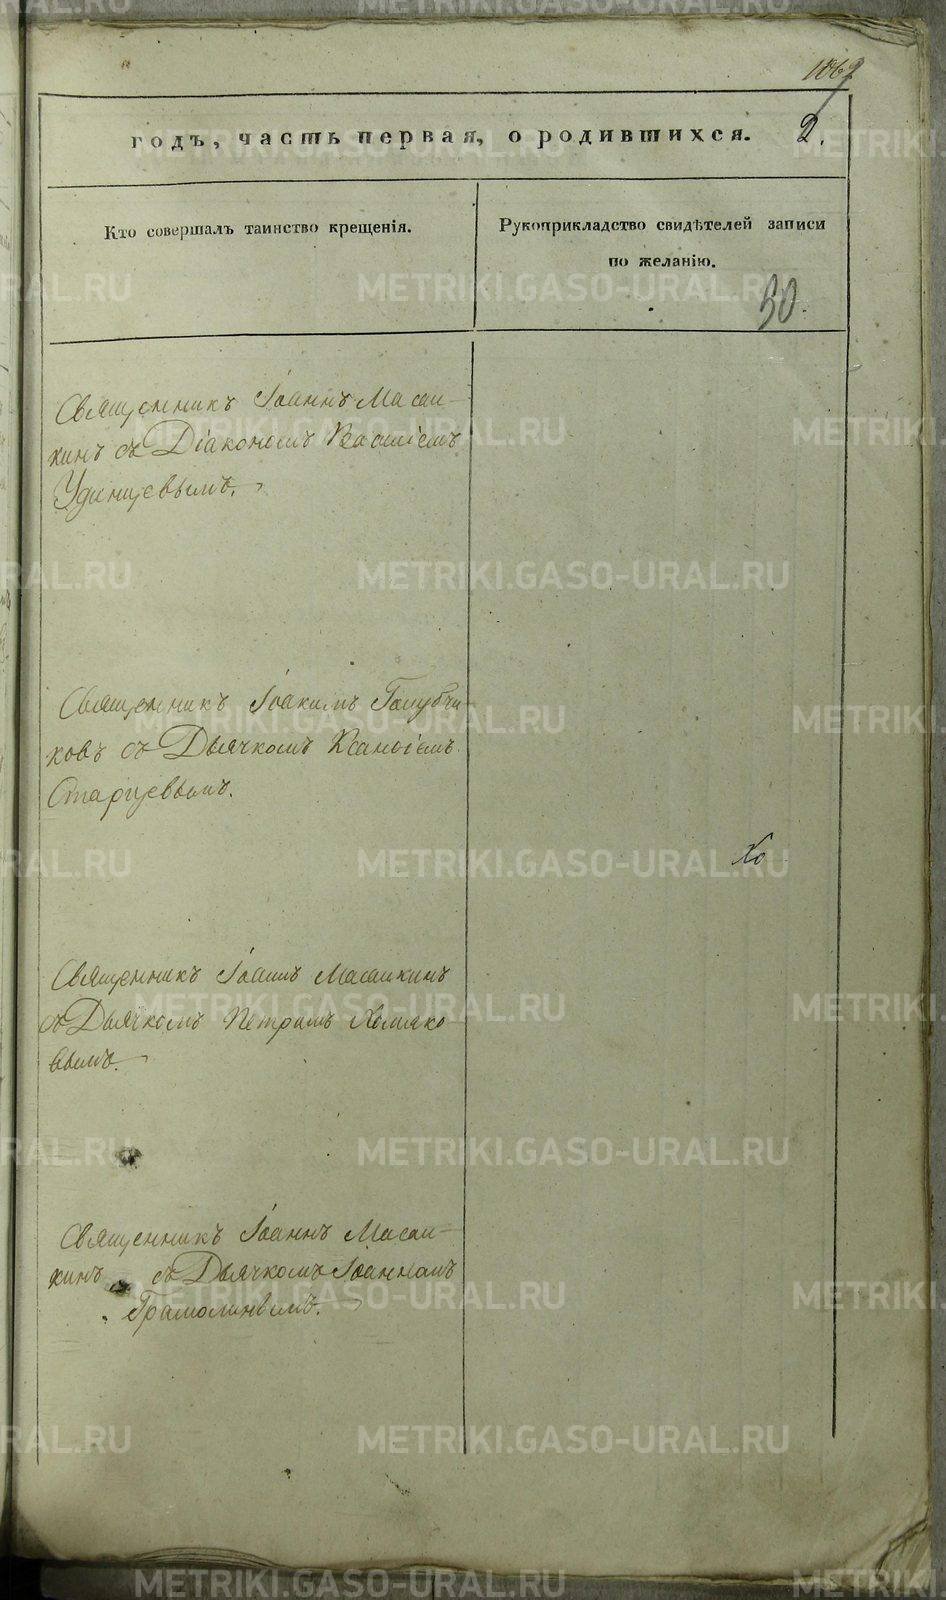 годъ, часть первая, о родившихся. 2.
Кто совершалъ таинство крещенія.
Рукоприкладство свидѣтелей записи
по желанію.
50.
Священникъ Іоаннъ Масаль-
кинъ съ Діакономъ Василіемъ
Удинцевымъ.
Священникъ Іоакимъ Голубчи-
ковъ съ Дьячкомъ
Старцевымъ.
Священникъ Іоаннъ Масалкинъ
съ Дьячкомъ Петромъ Хомяко-
вымъ.
Священникъ Іоаннъ Масал-
кинъ съ Дьячкомъ Іоанномъ
METRIKI.GASO-URAL.RU